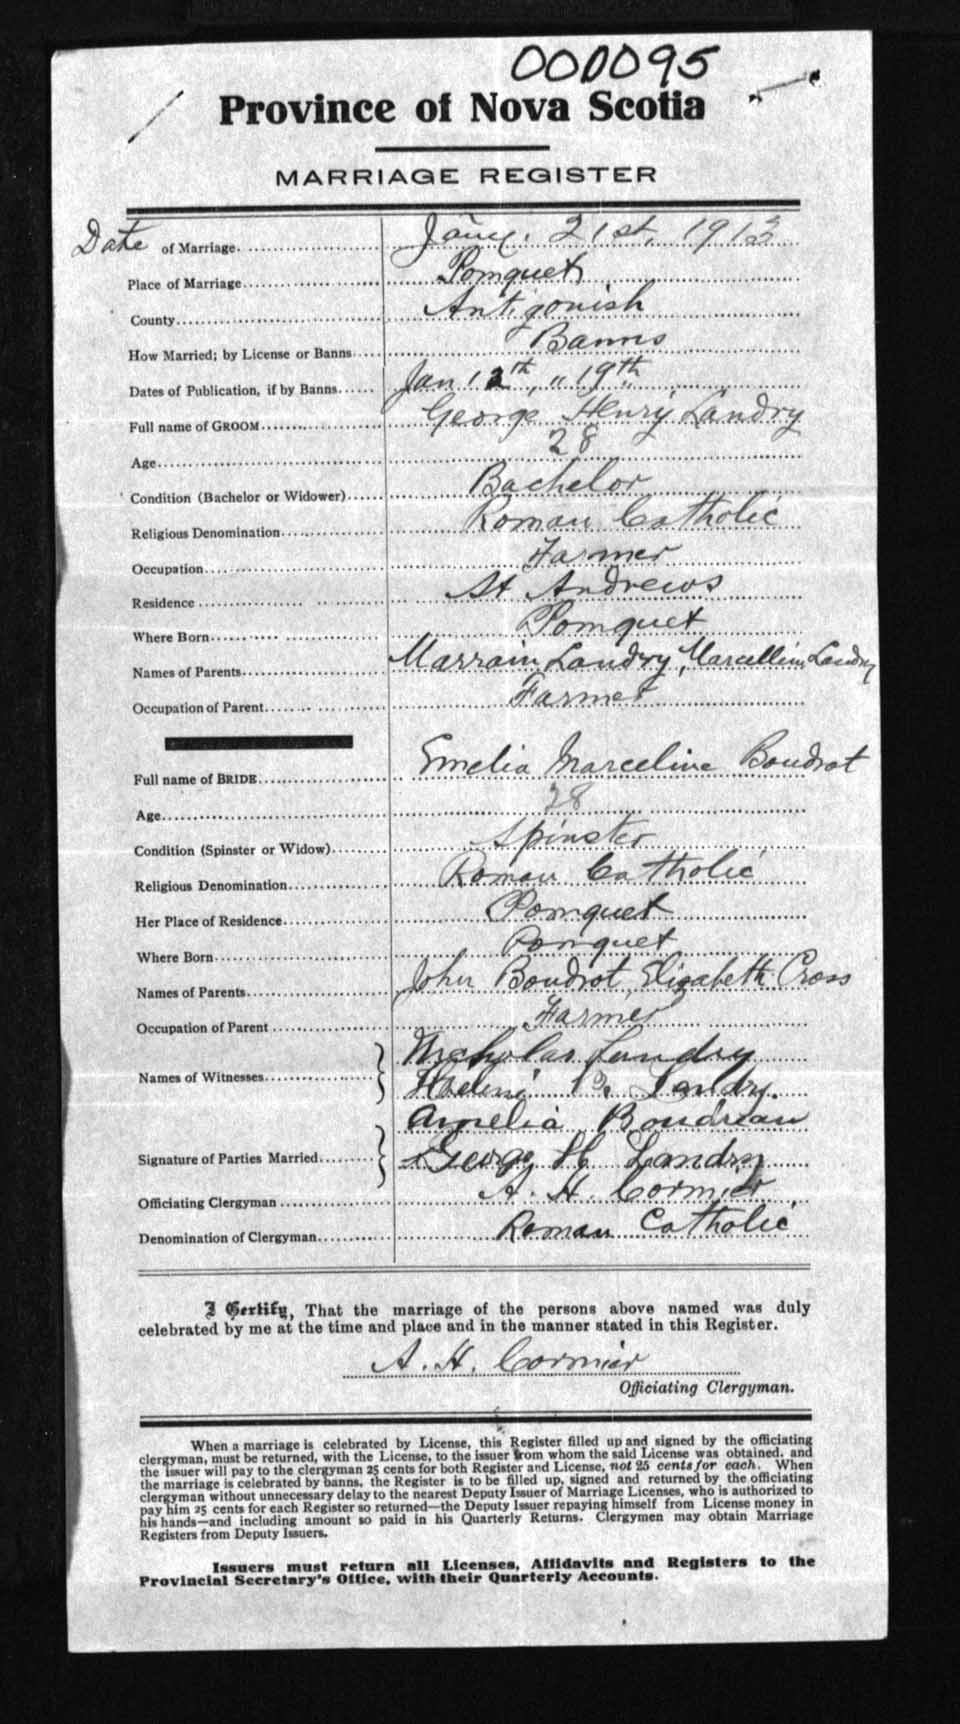 000095
Province of Nova Scotia
MARRIAGE REGISTER
Date of Marriage Jany. 21st, 1913
Place of Marriage Pomquet
County Antigonish
How Married; by License or Banns Banns
Dates of Publication, if by Banns Jan 12th, " 19th
Full name of GROOM George Henry Landry
Age 28
Condition (Bachelor or Widower) Bachelor
Religious Denomination Roman Catholic
Occupation Farmer
Residence St Andrews
Where Born Pomquet
Names of Parents Landry, Marcelline Landry
Occupation of Parent Farmer
Full name of BRIDE Emelia Marceline Boudrot
Age 28
Condition (Spinster or Widow) Spinster
Religious Denomination Roman Catholic
Her Place of Residence Pomquet
Where Born Pomquet
Names of Parents John Boudrot, Elizabeth Cross
Occupation of Parent Farmer
Names of Witnesses Nicholas Landry
Landry.
Amelia Boudreau
Signature of Parties Married George H Landry
Officiating Clergyman A. H. Cormier
Denomination of Clergyman Roman Catholic
I Certify, That the marriage of the persons above named was duly
celebrated by me at the time and place and in the manner stated in this Register.
A. H. Cormier
Officiating Clergyman.
When a marriage is celebrated by License, this Register filled up and signed by the officiating
clergyman, must be returned, with the License, to the issuer from whom the said License was obtained, and
the issuer will pay to the clergyman 25 cents for both Register and License, not 25 cents for each. When
the marriage is celebrated by banns, the Register is to be filled up, signed and returned by the officiating
clergyman without unnecessary delay to the nearest Deputy Issuer of Marriage Licenses, who is authorized to
pay him 25 cents for each Register so returned—the Deputy Issuer repaying himself from License money in
his hands—and including amount so paid in his Quarterly Returns. Clergymen may obtain Marriage
Registers from Deputy Issuers.
Issuers must return all Licenses, Affidavits and Registers to the
Provincial Secretary's Office, with their Quarterly Accounts.